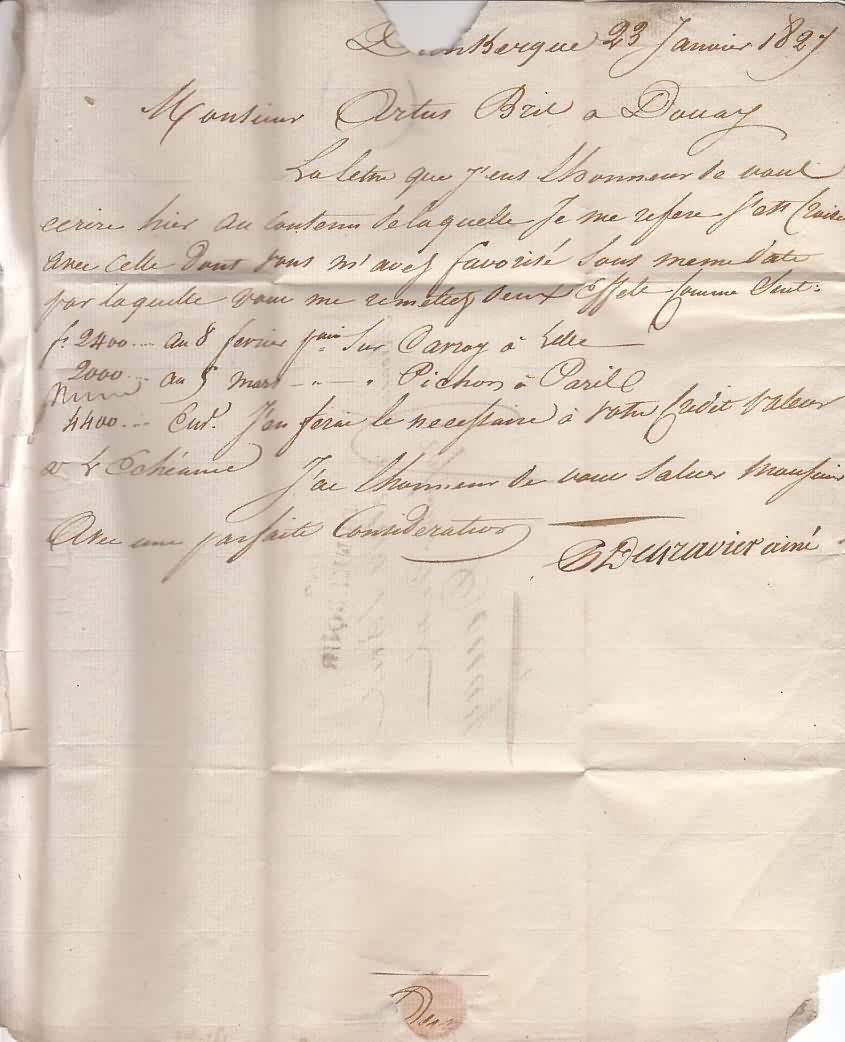 Dunkerque 23 Janvier 1827
Monsieur Artus Bril a Douay
La letre que J'eus lhonneur de vous
ecrire hier au contenu de laquelle Je me refere s'est Croisé
avec celle dont vous m'avez favorisé sous meme date
par laquelle vous me remettez deux Effets comme suit:
f. 2400 ... au 8 fevrier pain sur Carroy à Lille
2000 ... au 5 mars - " - " Pichon à Paris
4400 ... End. J'en ferai le necessaire à votre Credit valeur
Echéance J'ai lhonneur de vous saluer Monsieur
Avec une parfaite Consideration
ainé